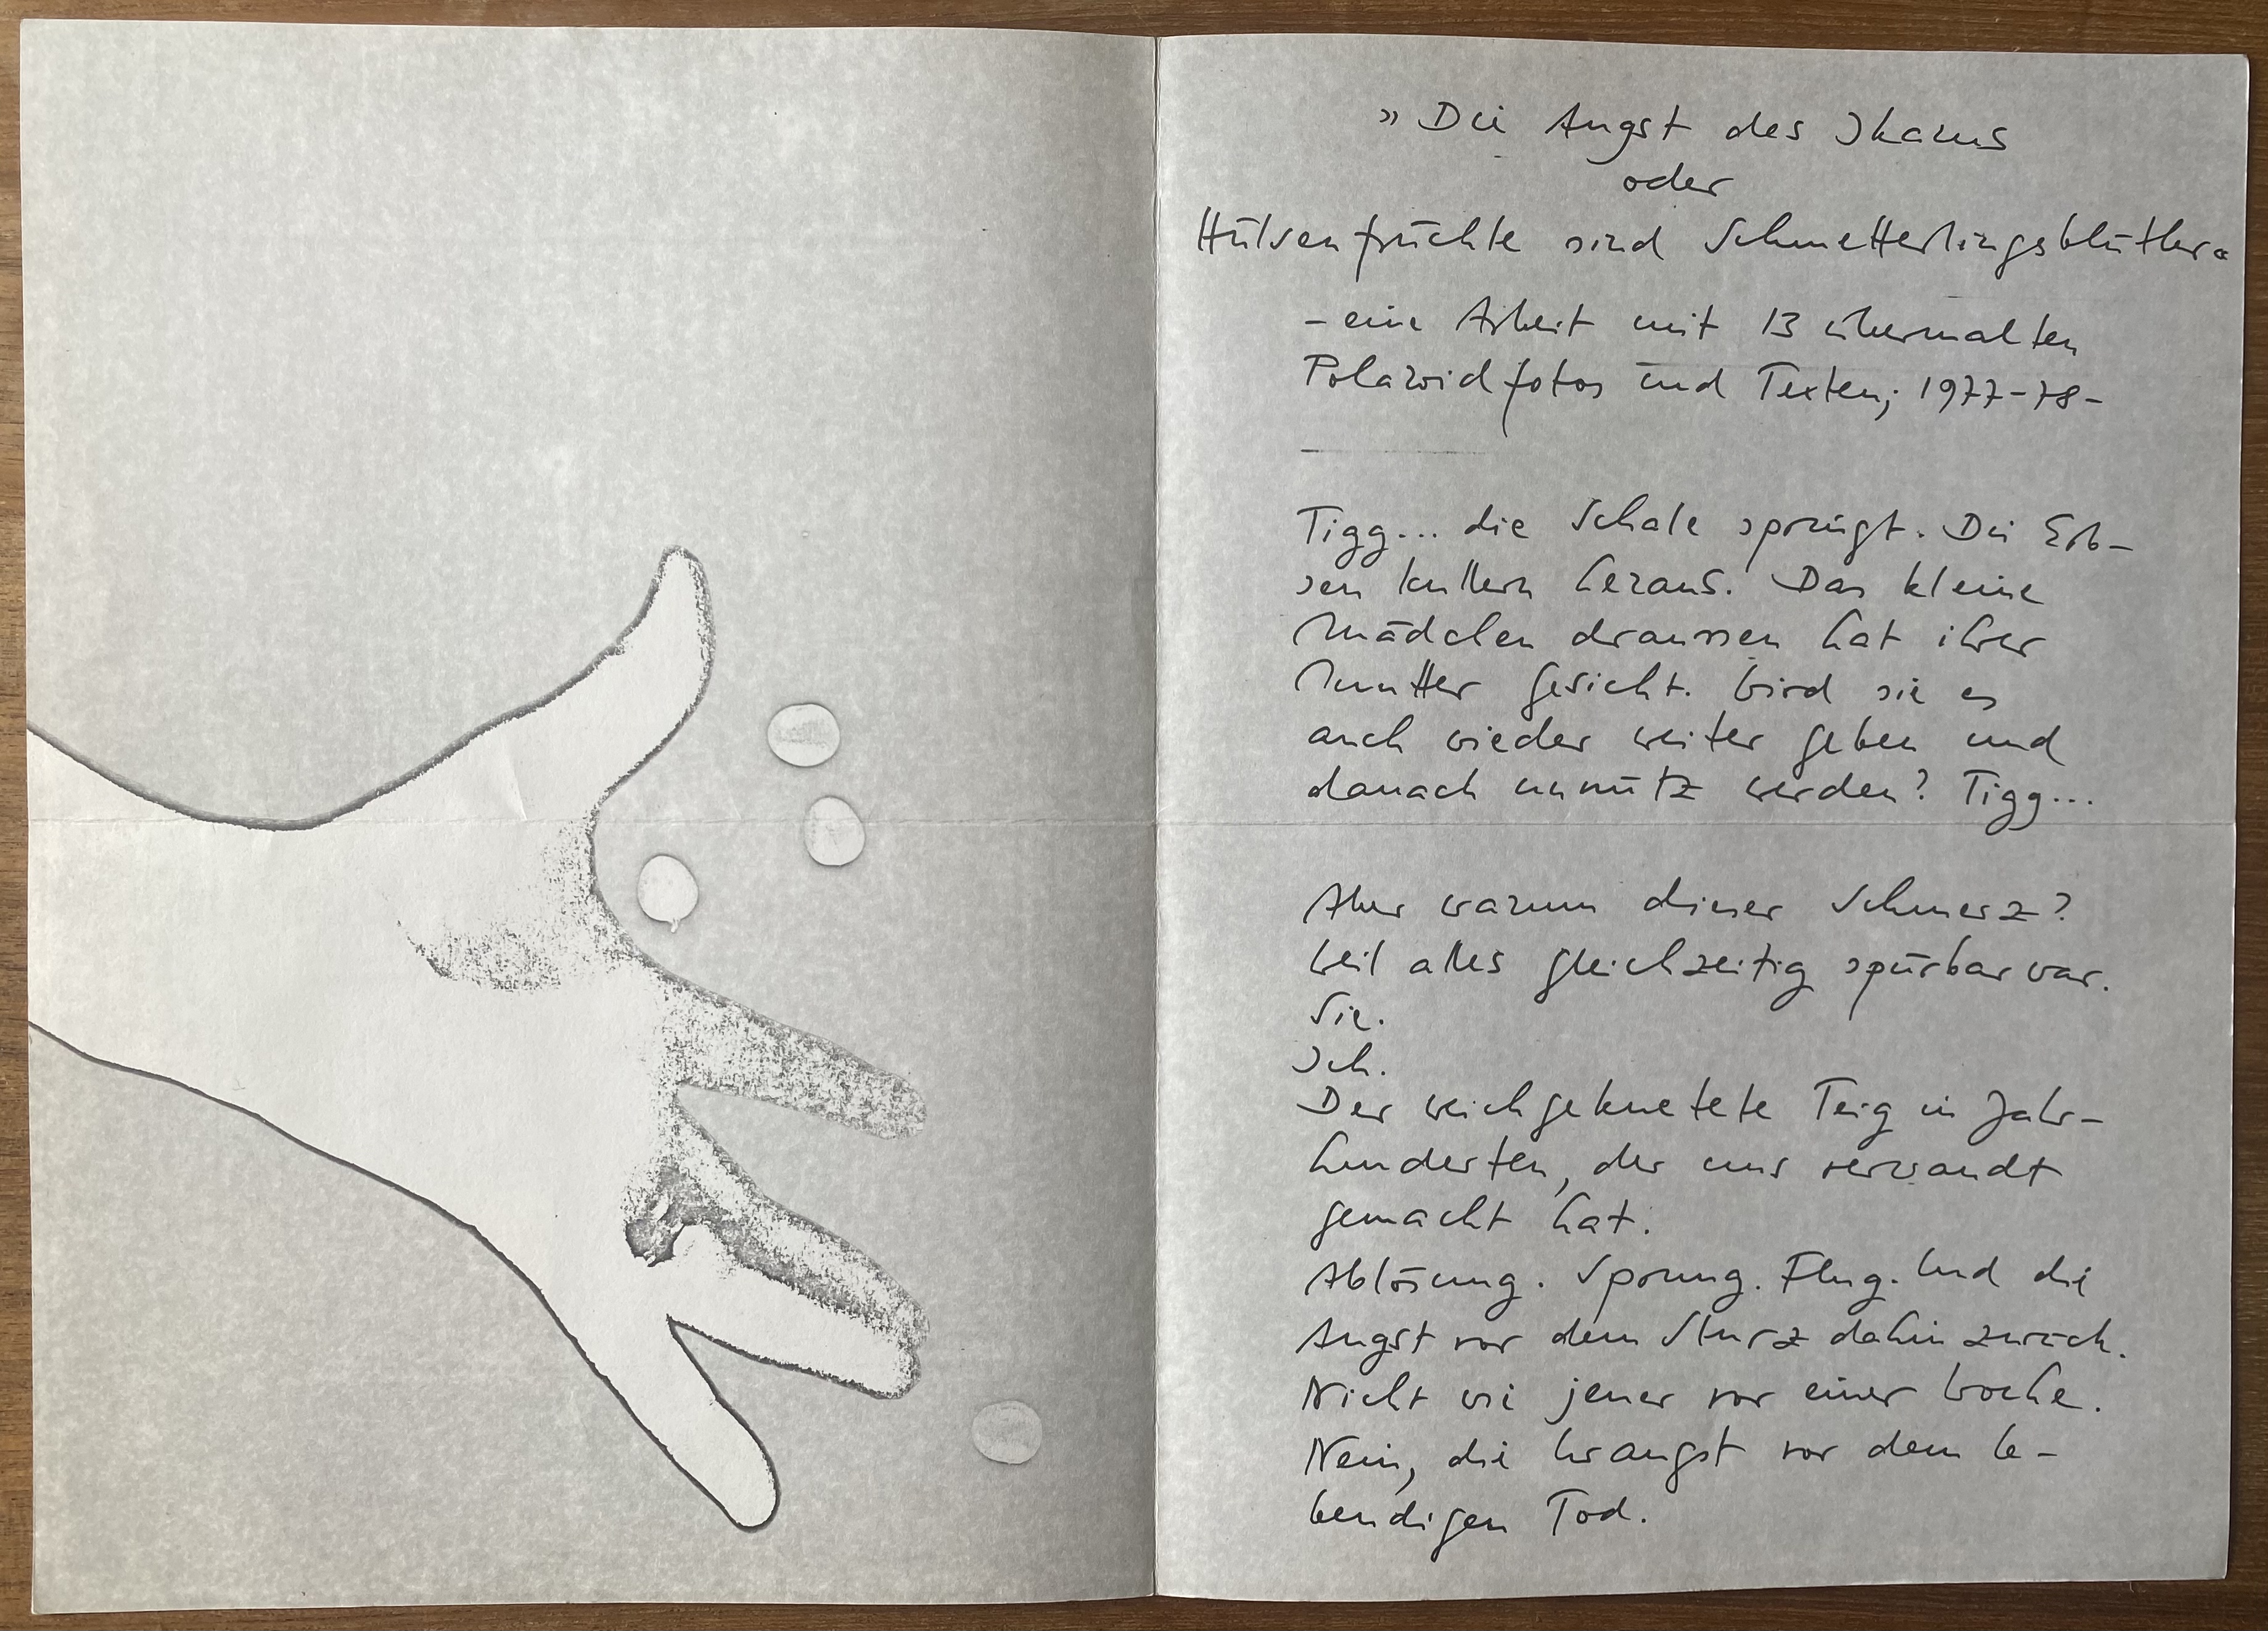 »Die Angst des Ikarus
oder
Hülsenfrüchte sind Schmetterlingsblütler«
- eine Arbeit mit 13 übermalten
Polaroidfotos und Texten; 1977-78-
Tigg... die Schale springt. Die Erb-
sen kullern heraus. Das kleine
Mädchen draussen hat ihrer
Mutter Gesicht. Wird sie es
auch wieder weiter geben und
danach unnütz werden? Tigg...
Aber warum dieser Schmerz?
Weil alles gleichzeitig spürbar war.
Sie.
Ich.
Der weichgeknetete Teig in Jahr-
hunderten, der uns verwandt
gemacht hat.
Ablösung. Sprung. Flug. Und die
Angst vor dem Sturz dahin zurück.
Nicht wie jener vor einer Woche.
Nein, die Urangst vor dem le-
bendigen Tod.